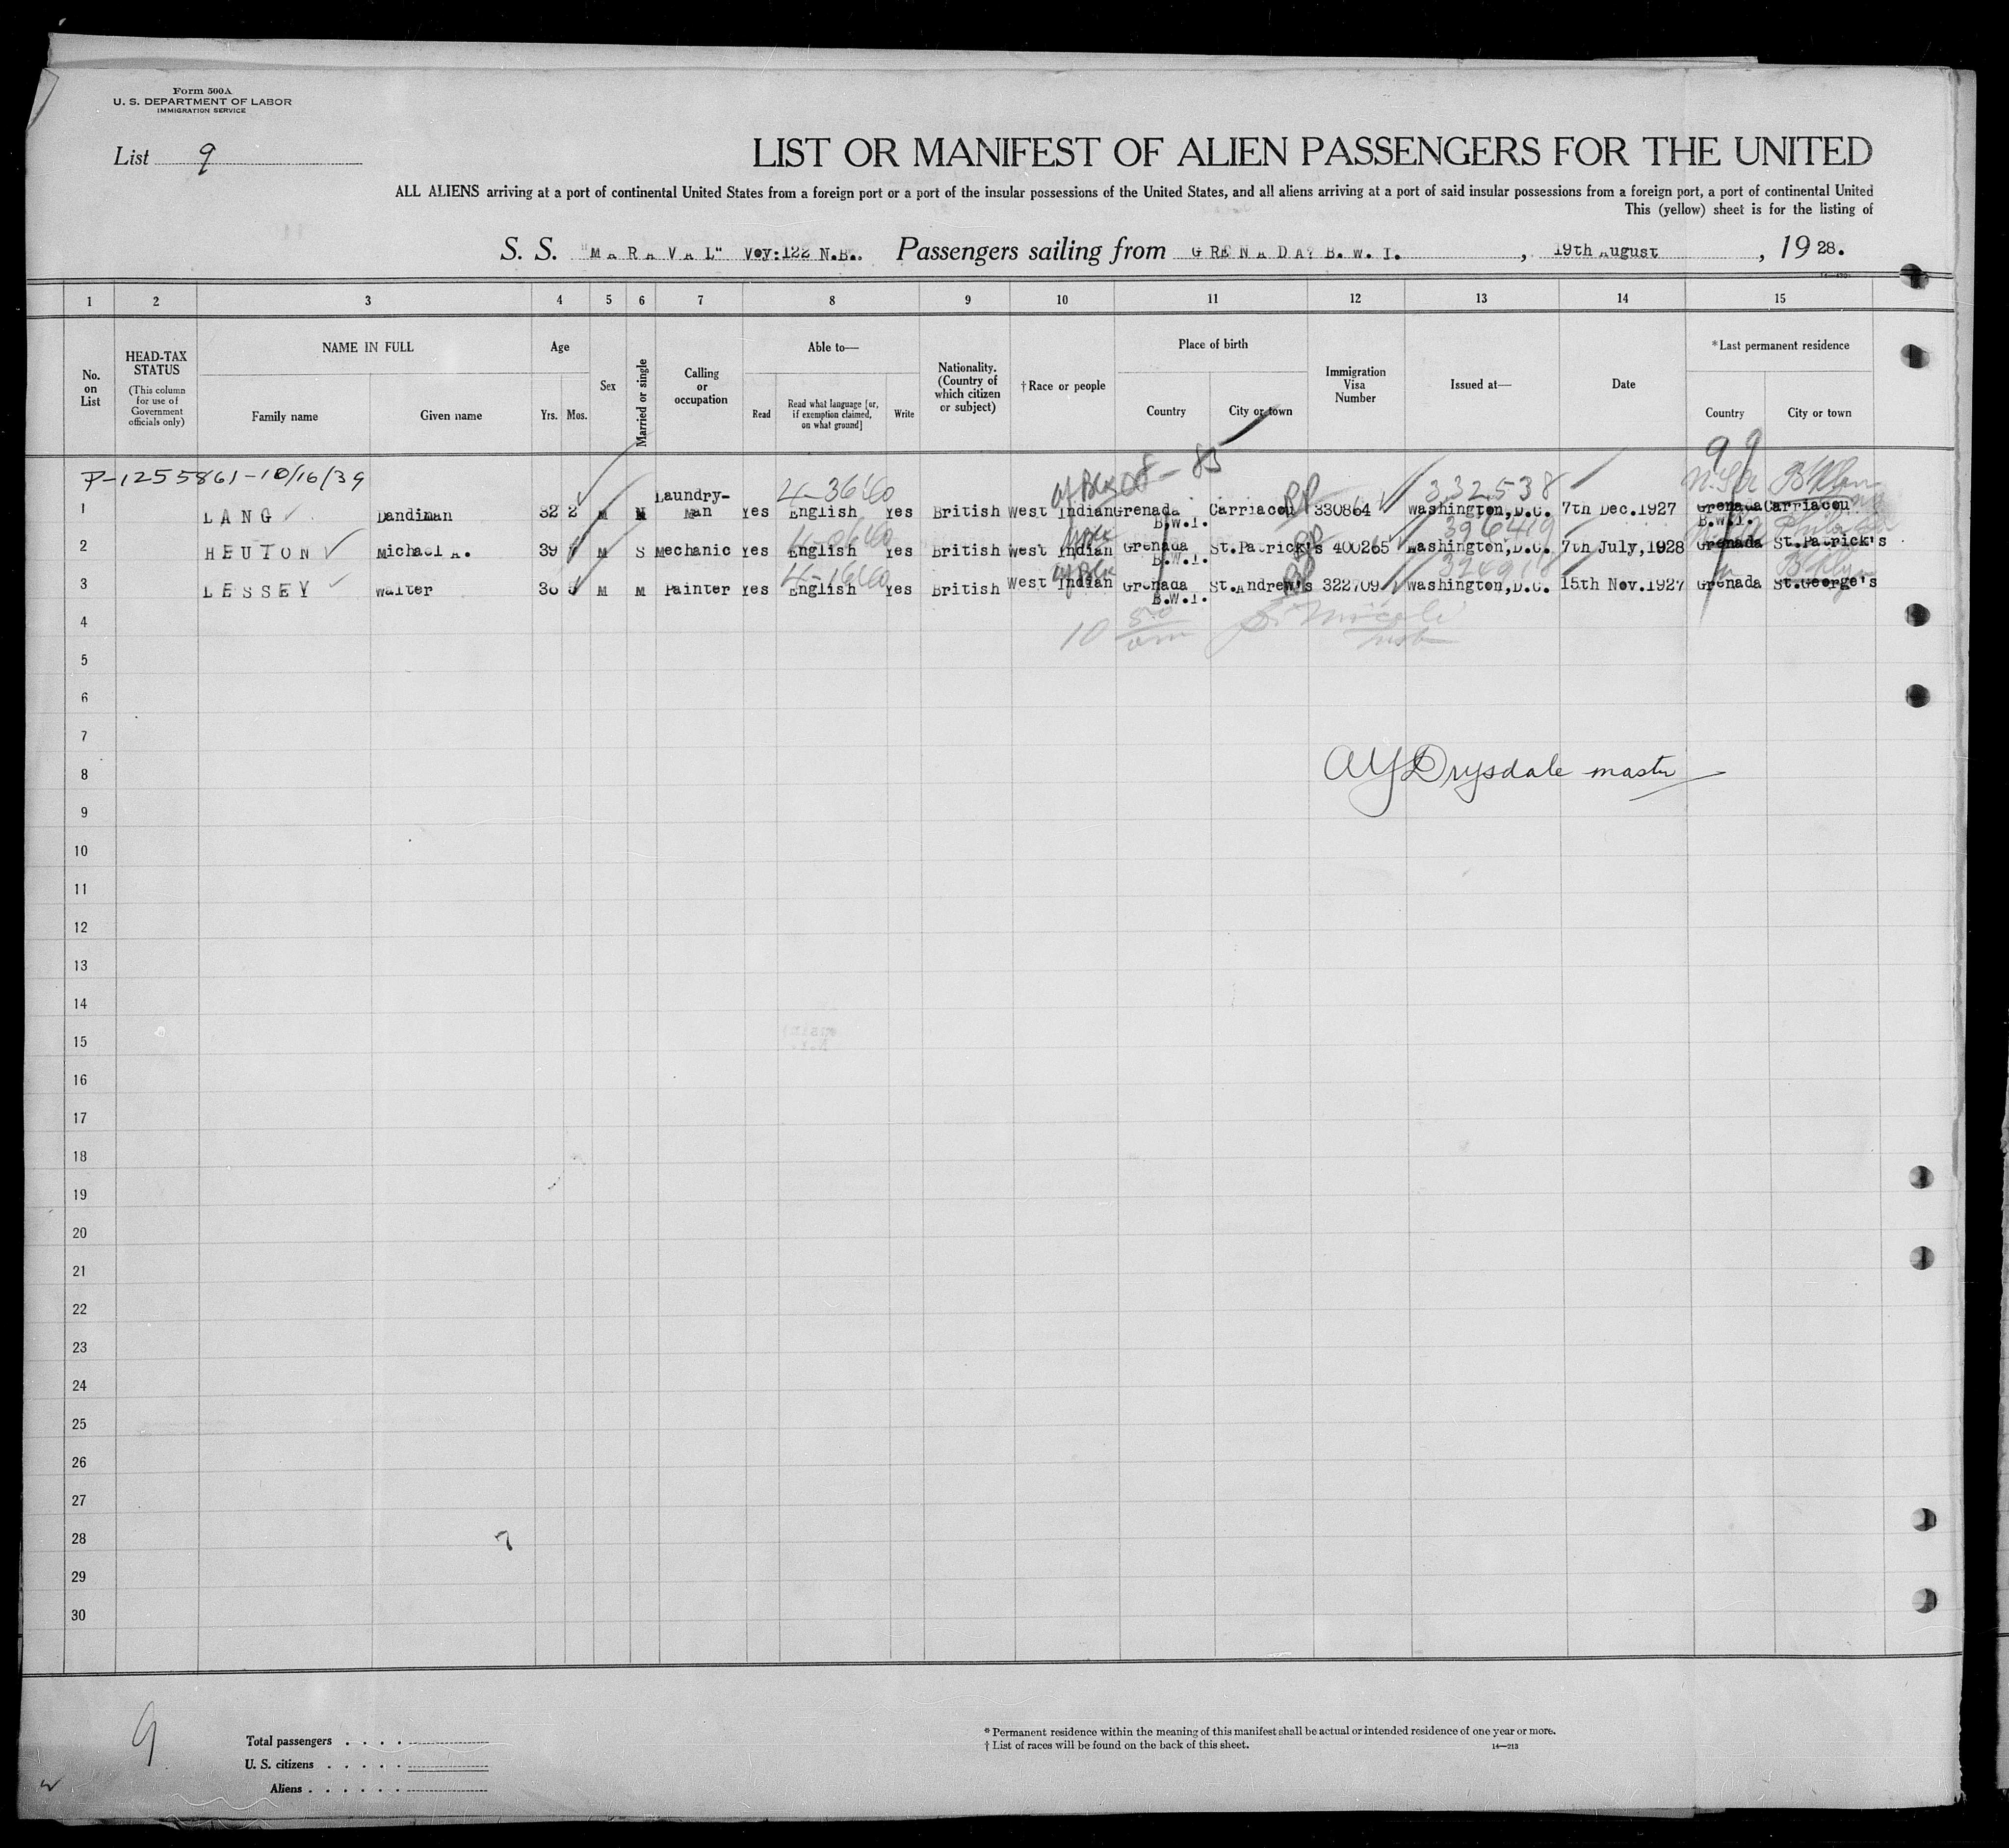 Form 500A
U. S. DEPARTMENT OF LABOR
IMMIGRATION SERVICE
List 9
LIST OR MANIFEST OF ALIEN PASSENGERS FOR THE UNITED
ALL ALIENS arriving at a port of continental United States from a foreign port or a port of the insular possessions of the United States, and all aliens arriving at a port of said insular possessions from a foreign port, a port of continental United
This (yellow) sheet is for the listing of
S. S. "MARAVAL" Voy:122 N.B. Passengers sailing from GRENADA, B.W.I. , 19th August , 1928.
1 2 3 4 5 6 7 8 9 10 11 12 13 14 15
No. on List
HEAD-TAX STATUS
(This column for use of Government officials only)
NAME IN FULL
Family name Given name
Age
Yrs. Mos.
Sex
Married or single
Calling or occupation
Able to—
Read
Read what language [or, if exemption claimed, on what ground]
Write
Nationality. (Country of which citizen or subject)
† Race or people
Place of birth
Country City or town
Immigration Visa Number
Issued at—
Date
* Last permanent residence
Country City or town
99
P-1255861-10/16/39
4-3640 332538
1 LANG Dandiman 32 2 M M Laundry-Man Yes English Yes British West Indian Grenada B.W.I. Carriacou RP 330864 Washington,D.C. 7th Dec.1927 Grenada B.W.I. Carriacou
396419
2 HEUTON Michael A. 39 M S Mechanic Yes English Yes British West Indian Grenada B.W.I. St.Patrick's RP 400265 Washington,D.C. 7th July,1928 Grenada St.Patrick's
3 LESSEY Walter M M Painter Yes English Yes British West Indian Grenada B.W.I. St.Andrew's RP 322709 Washington,D.C. 15th Nov.1927 Grenada St.George's
4
5
6
7
8 AY Drysdale master
9
10
11
12
13
14
15
16
17
18
19
20
21
22
23
24
25
26
27
28
29
30
9
Total passengers
U. S. citizens
Aliens
* Permanent residence within the meaning of this manifest shall be actual or intended residence of one year or more.
† List of races will be found on the back of this sheet.
14—213